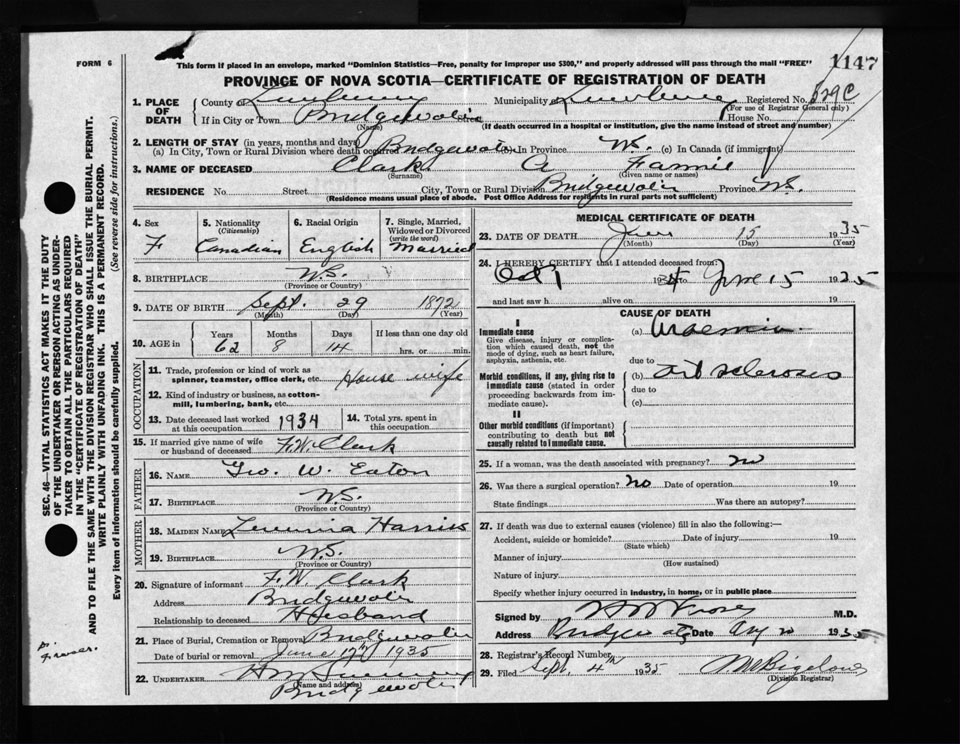 FORM 6
This form if placed in an envelope, marked "Dominion Statistics—Free, penalty for improper use $300," and properly addressed will pass through the mail "FREE"
1147
PROVINCE OF NOVA SCOTIA—CERTIFICATE OF REGISTRATION OF DEATH
1. PLACE OF DEATH
County of Lunenburg Municipality of Lunenburg Registered No.
(For use of Registrar General only)
If in City or Town Bridgewater House No.
(Name) (If death occurred in a hospital or institution, give the name instead of street and number)
2. LENGTH OF STAY (in years, months and days)
(a) In City, Town or Rural Division where death occurred Bridgewater (b) In Province N.S. (c) In Canada (if immigrant)
3. NAME OF DECEASED Clark A Fannie
(Surname) (Given name or names)
RESIDENCE No. Street City, Town or Rural Division Bridgewater Province N.S.
(Residence means usual place of abode. Post Office Address for residents in rural parts not sufficient)
4. Sex 5. Nationality (Citizenship) 6. Racial Origin 7. Single, Married, Widowed or Divorced (write the word)
F Canadian English Married
8. BIRTHPLACE N.S.
(Province or Country)
9. DATE OF BIRTH Sept. 29 1872
(Month) (Day) (Year)
10. AGE in Years Months Days If less than one day old
62 8 14 hrs. or min.
OCCUPATION
11. Trade, profession or kind of work as spinner, teamster, office clerk, etc. House wife
12. Kind of industry or business, as cotton-mill, lumbering, bank, etc.
13. Date deceased last worked at this occupation 1934 14. Total yrs. spent in this occupation
15. If married give name of wife or husband of deceased F.W. Clark
FATHER
16. NAME Geo. W. Eaton
17. BIRTHPLACE N.S.
(Province or Country)
MOTHER
18. MAIDEN NAME Harris
19. BIRTHPLACE N.S.
(Province or Country)
20. Signature of informant F.W. Clark
Address Bridgewater
Relationship to deceased Husband
21. Place of Burial, Cremation or Removal Bridgewater
Date of burial or removal June 17th 1935
22. UNDERTAKER
(Name and address)
Bridgewater
MEDICAL CERTIFICATE OF DEATH
23. DATE OF DEATH June 15 1935
(Month) (Day) (Year)
24. I HEREBY CERTIFY that I attended deceased from:
Oct 1 1934 to June 15 1935
and last saw h alive on 19
CAUSE OF DEATH
I
Immediate cause (a) Uraemia
Give disease, injury or complication which caused death, not the mode of dying, such as heart failure, asphyxia, asthenia, etc.
due to
Morbid conditions, if any, giving rise to immediate cause (stated in order proceeding backwards from immediate cause). (b) art sclerosis
due to
(c)
II
Other morbid conditions (if important) contributing to death but not causally related to immediate cause.
25. If a woman, was the death associated with pregnancy? no
26. Was there a surgical operation? no Date of operation 19
State findings Was there an autopsy?
27. If death was due to external causes (violence) fill in also the following:—
Accident, suicide or homicide? Date of injury 19
(State which)
Manner of injury
(How sustained)
Nature of injury
Specify whether injury occurred in industry, in home, or in public place
Signed by M.D.
Address Bridgewater Date Aug 1935
28. Registrar's Record Number
29. Filed Sept. 4th 1935
(Division Registrar)
SEC. 46—VITAL STATISTICS ACT MAKES IT THE DUTY
OF THE UNDERTAKER OR PERSON ACTING AS UNDER-
TAKER TO OBTAIN ALL THE PARTICULARS REQUIRED
IN THE "CERTIFICATE OF REGISTRATION OF DEATH"
AND TO FILE THE SAME WITH THE DIVISION REGISTRAR WHO SHALL ISSUE THE BURIAL PERMIT.
WRITE PLAINLY WITH UNFADING INK. THIS IS A PERMANENT RECORD.
Every item of information should be carefully supplied. (See reverse side for instructions.)